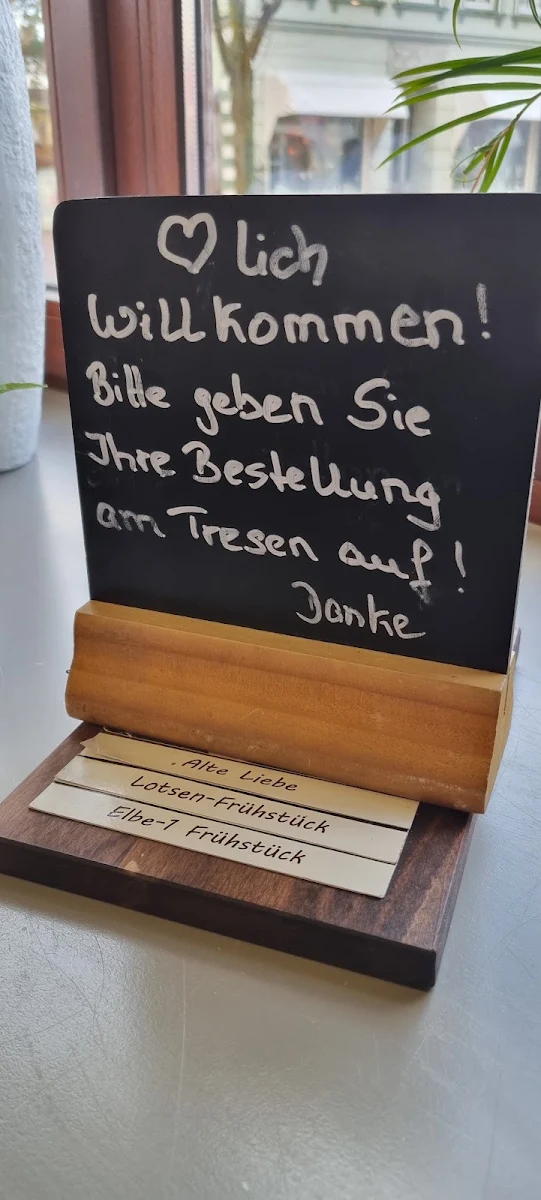 ♡lich
Willkommen!
Bitte geben Sie
Ihre Bestellung
am Tresen auf!
Danke
Alte Liebe
Lotsen-Frühstück
Elbe-1 Frühstück